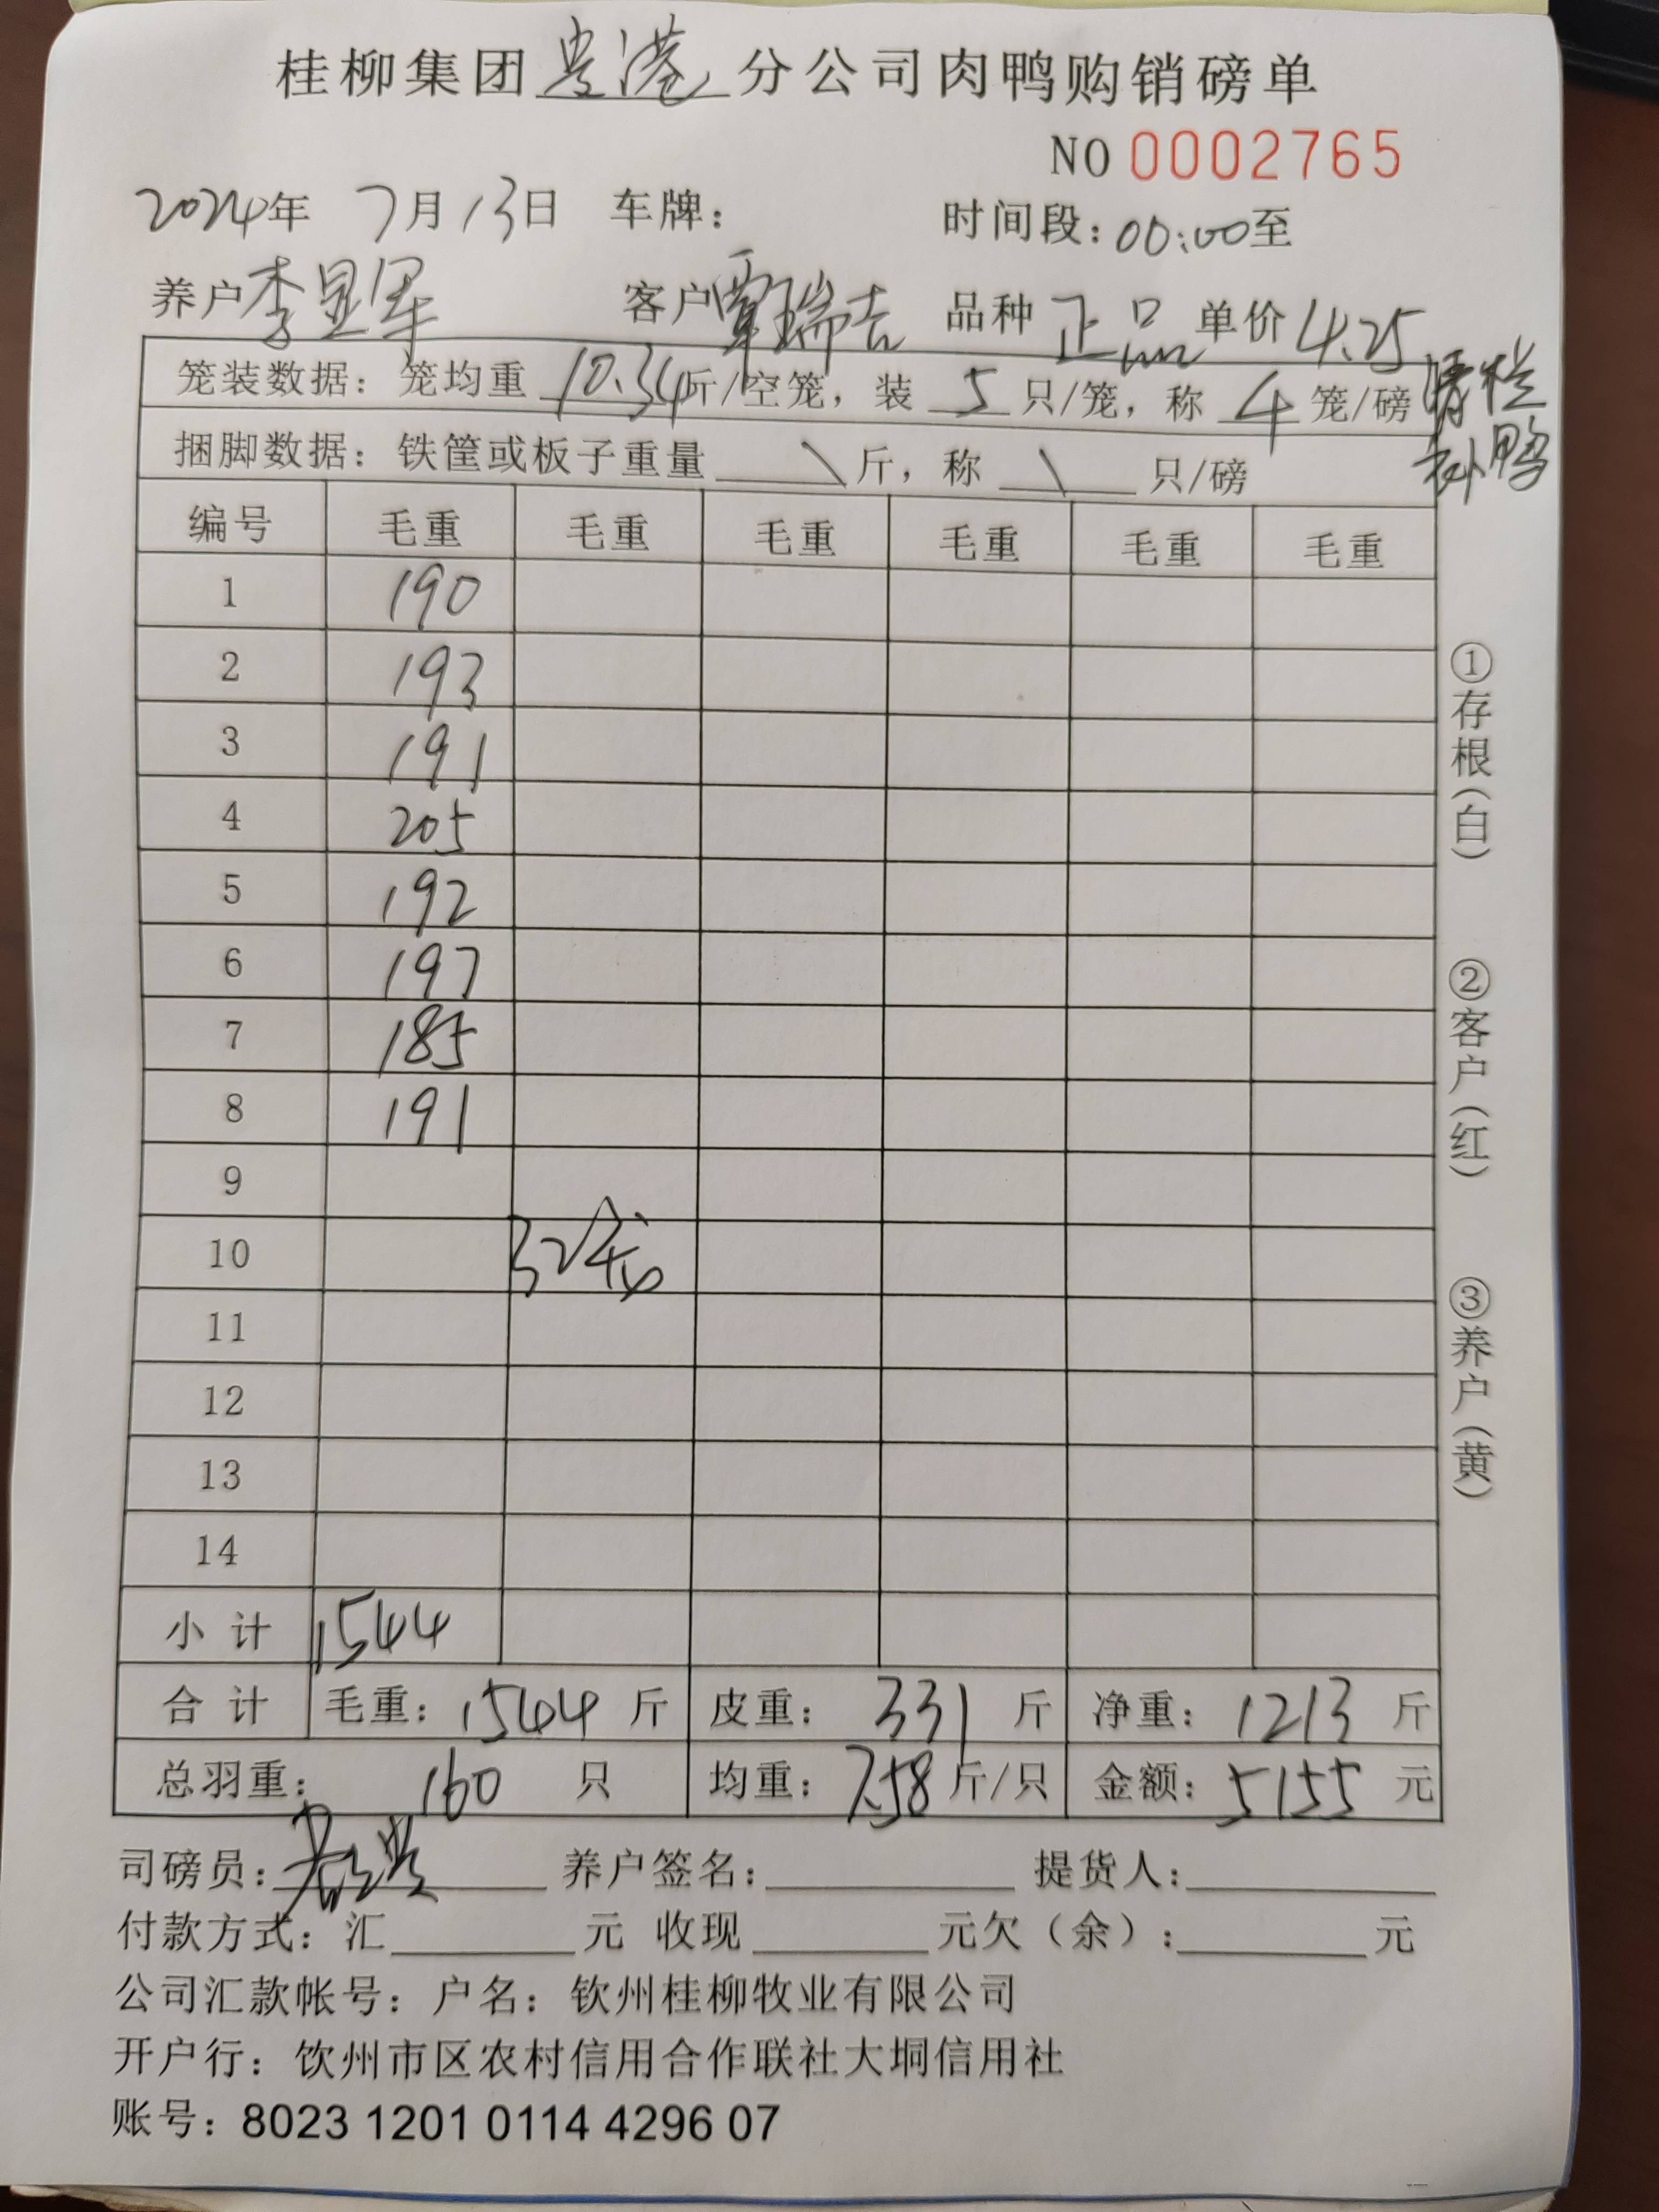 桂柳集团贵港分公司肉鸭购销磅单
NO 0002765
2024年 7月13日 车牌： 时间段：00:00至
养户李显军 客户覃瑞吉 品种 正品 单价4.25
笼装数据：笼均重 10.34斤/空笼，装 5 只/笼，称 4 笼/磅
清栏
补鸭
捆脚数据：铁筐或板子重量 \ 斤，称 \ 只/磅
编号 毛重 毛重 毛重 毛重 毛重 毛重
1 190
2 193
3 191
4 205
5 192
6 197
7 185
8 191
9
10 32笼
11
12
13
14
小计 1544
合计 毛重：1544 斤 皮重：331 斤 净重：1213 斤
总羽重：160 只 均重：7.58斤/只 金额：5155 元
司磅员： 养户签名： 提货人：
付款方式：汇 元 收现 元欠（余）： 元
公司汇款帐号：户名：钦州桂柳牧业有限公司
开户行：饮州市区农村信用合作联社大垌信用社
账号：8023 1201 0114 4296 07
①存根（白）
②客户（红）
③养户（黄）